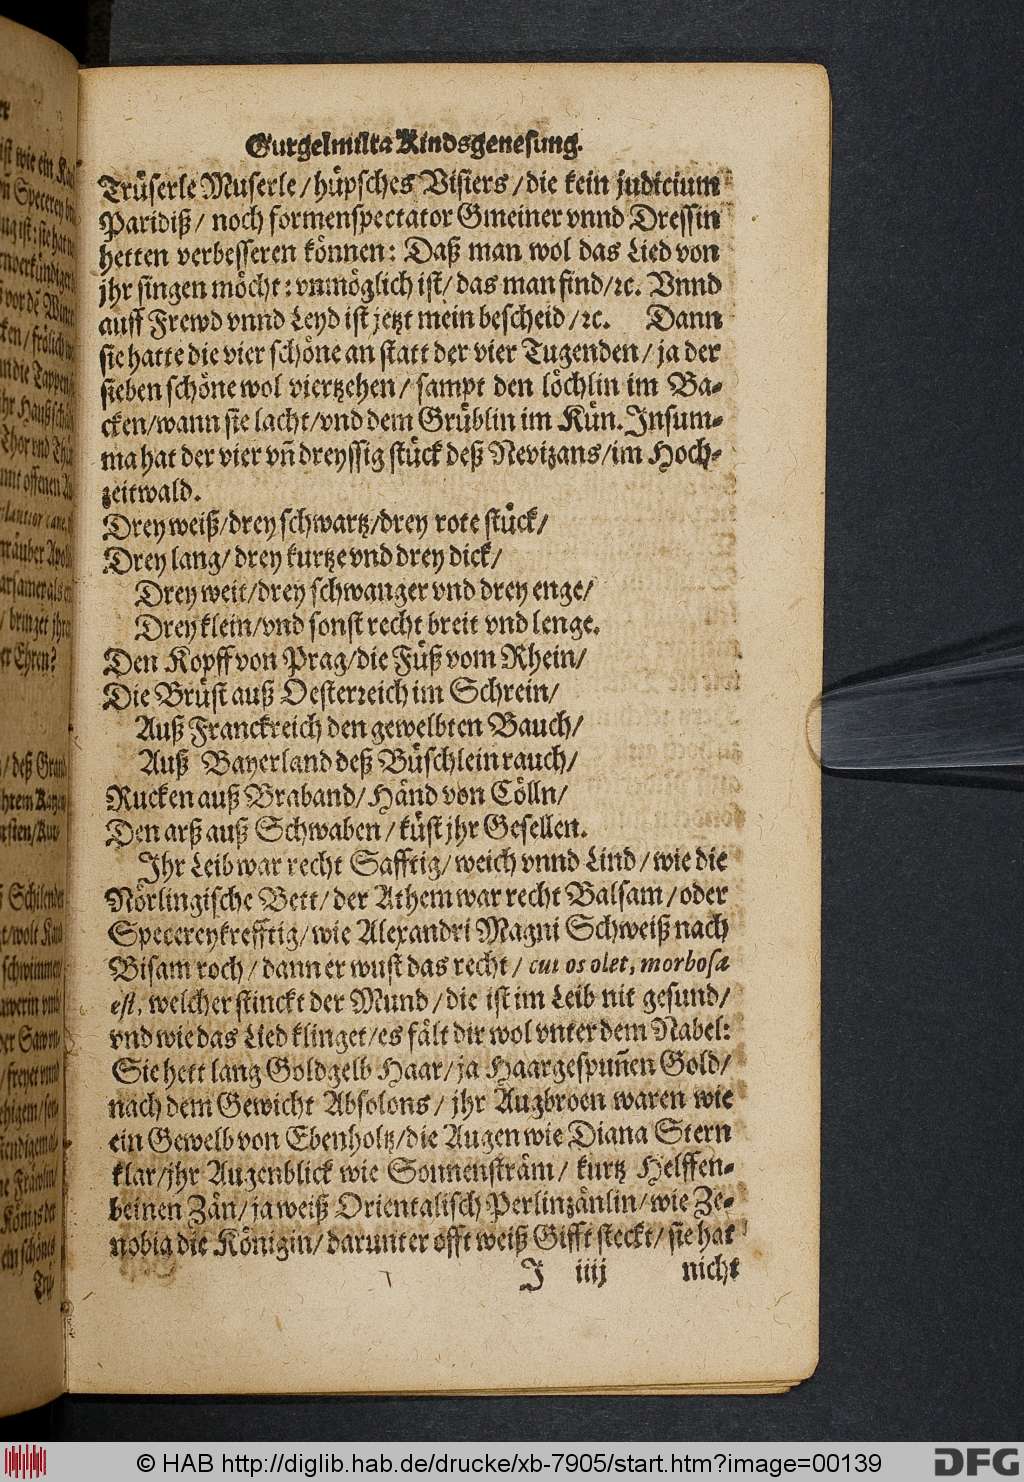 Gurgelmilta Kindsgenesung.
Trüserle Muserle / hüpsches Visiers / die kein judicium
Paridiß / noch formenspectator Gmeiner vnnd Dressin
hetten verbesseren können: Daß man wol das Lied von
jhr singen möcht: vnmöglich ist / das man find / ꝛc. Vnnd
auff Frewd vnnd Leyd ist jetzt mein bescheid / ꝛc. Dann
sie hatte die vier schöne an statt der vier Tugenden / ja der
sieben schöne wol viertzehen / sampt den löchlin im Ba-
cken / wann sie lacht / vnd dem Grüblin im Kün. Insum-
ma hat der vier vñ dreyssig stück deß Nevizans / im Hoch-
zeitwald.
Drey weiß / drey schwartz / drey rote stück /
Drey lang / drey kurtze vnd drey dick /
Drey weit / drey schwanger vnd drey enge /
Drey klein / vnd sonst recht breit vnd lenge.
Den Kopff von Prag / die Füß vom Rhein /
Die Brüst auß Oesterreich im Schrein /
Auß Franckreich den gewelbten Bauch /
Auß Bayerland deß Büschlein rauch /
Rucken auß Braband / Händ von Cölln /
Den arß auß Schwaben / küst jhr Gesellen.
Ihr Leib war recht Safftig / weich vnnd Lind / wie die
Nörlingische Bett / der Athem war recht Balsam / oder
Specereykrefftig / wie Alexandri Magni Schweiß nach
Bisam roch / dann er wust das recht / cui os olet, morbosa
est, welcher stinckt der Mund / die ist im Leib nit gesund /
vnd wie das Lied klinget / es fält dir wol vnter dem Nabel:
Sie hett lang Goldgelb Haar / ja Haargespuñen Gold /
nach dem Gewicht Absolons / jhr Augbroen waren wie
ein Gewelb von Ebenholtz / die Augen wie Diana Stern
klar / jhr Augenblick wie Sonnensträm / kurtz Helffen-
beinen Zän / ja weiß Orientalisch Perlinzänlin / wie Ze-
nobia die Königin / darunter offt weiß Gifft steckt / sie hat
J iiij nicht
© HAB http://diglib.hab.de/drucke/xb-7905/start.htm?image=00139
DFG